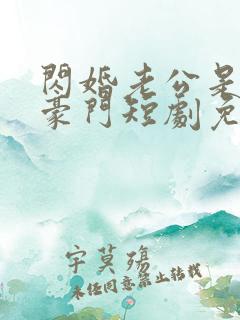 閃婚老公是
豪門短劇免
宇莫殤
未經同意禁止轉載